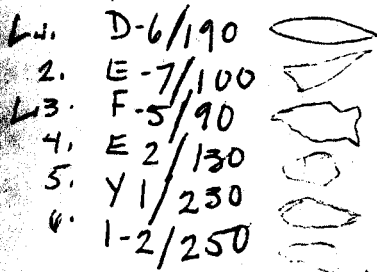 L 1. D-6/190
2. E-7/100
L 3. F-5/90
4. E 2/130
5. Y 1/230
6. 1-2/250